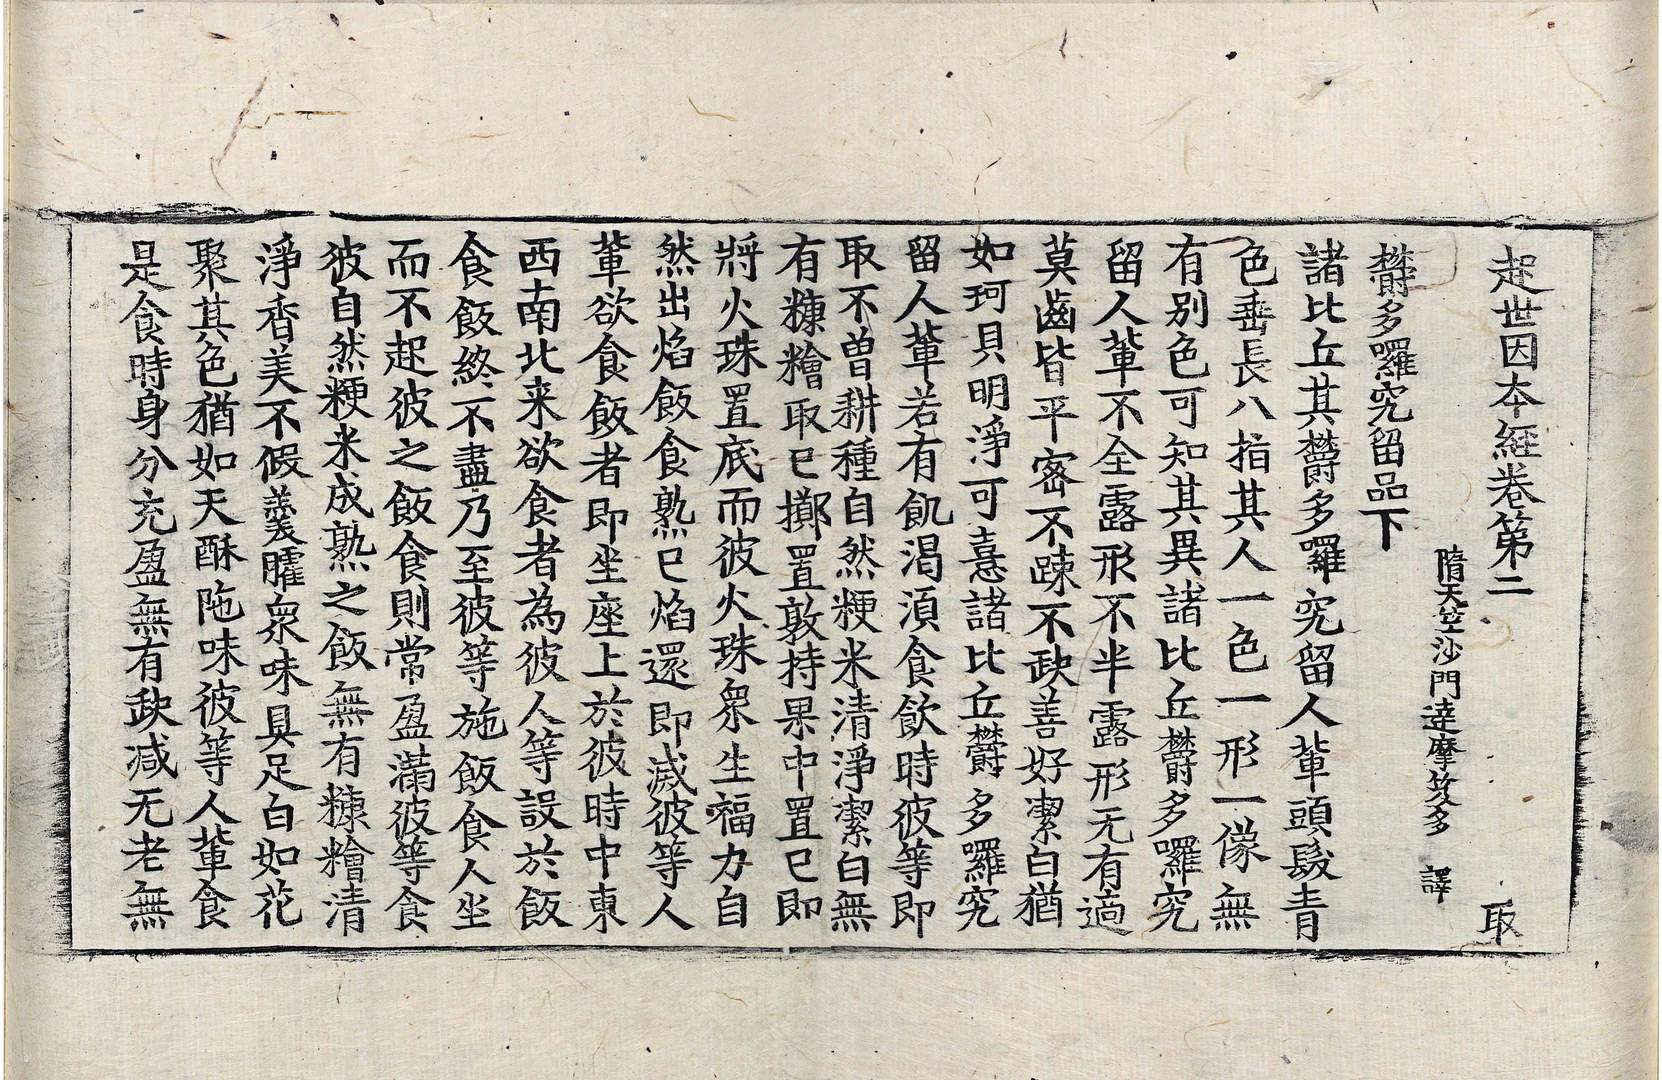 起世因本經卷第二 取
隋天竺沙門達摩笈多 譯
欝多囉究留品下
諸比丘其欝多囉究留人輩頭髮青
色垂長八指其人一色一形一像無
有別色可知其異諸比丘欝多囉究
留人輩不全露形不半露形无有適
莫齒皆平密不踈不缺善好潔白猶
如珂貝明淨可憙諸比丘欝多囉究
留人輩若有飢渴湏食飲時彼等即
取不曾耕種自然粳米清淨潔白無
有糠糩取已擲置敦持果中置已即
將火珠置底而彼火珠衆生福力自
然出焰飯食熟已焰還即滅彼等人
輩欲食飯者即坐座上於彼時中東
西南北来欲食者為彼人等設於飯
食飯終不盡乃至彼等施飯食人坐
而不起彼之飯食則常盈滿彼等食
彼自然粳米成熟之飯無有糠糩清
淨香美不假羹臛衆味具足白如花
聚其色猶如天酥陁味彼等人輩食
是食時身分充盈無有缺减无老無